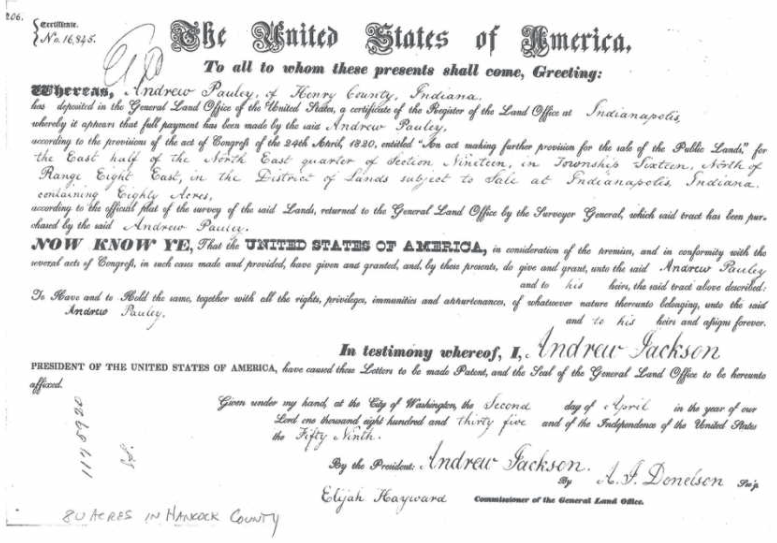 206.
Certificate.
No. 16,845.
The United States of America,
To all to whom these presents shall come, Greeting:
Whereas, Andrew Pauley, of Henry County, Indiana.
has deposited in the General Land Office of the United States, a certificate of the Register of the Land Office at Indianapolis
whereby it appears that full payment has been made by the said Andrew Pauley,
according to the provisions of the act of Congress of the 24th April, 1820, entitled "An act making further provision for the sale of the Public Lands," for
the East half of the North East quarter of Section Nineteen, in Township Sixteen, North of
Range Eight East, in the District of Lands subject to Sale at Indianapolis, Indiana.
containing Eighty Acres,
according to the official plat of the survey of the said Lands, returned to the General Land Office by the Surveyor General, which said tract has been pur-
chased by the said Andrew Pauley.
NOW KNOW YE, That the UNITED STATES OF AMERICA, in consideration of the premises, and in conformity with the
several acts of Congress, in such cases made and provided, have given and granted, and, by these presents, do give and grant, unto the said Andrew Pauley
and to his heirs, the said tract above described:
To Have and to Hold the same, together with all the rights, privileges, immunities and appurtenances, of whatsoever nature thereunto belonging, unto the said
Andrew Pauley,
and to his heirs and assigns forever.
In testimony whereof, I, Andrew Jackson
PRESIDENT OF THE UNITED STATES OF AMERICA, have caused these Letters to be made Patent, and the Seal of the General Land Office to be hereunto
affixed.
Given under my hand, at the City of Washington, the Second day of April in the year of our
Lord one thousand eight hundred and thirty five and of the Independence of the United States
the Fifty Ninth.
By the President: Andrew Jackson.
By A. J. Donelson Sec'y.
Elijah Hayward Commissioner of the General Land Office.
80 ACRES IN HANCOCK COUNTY